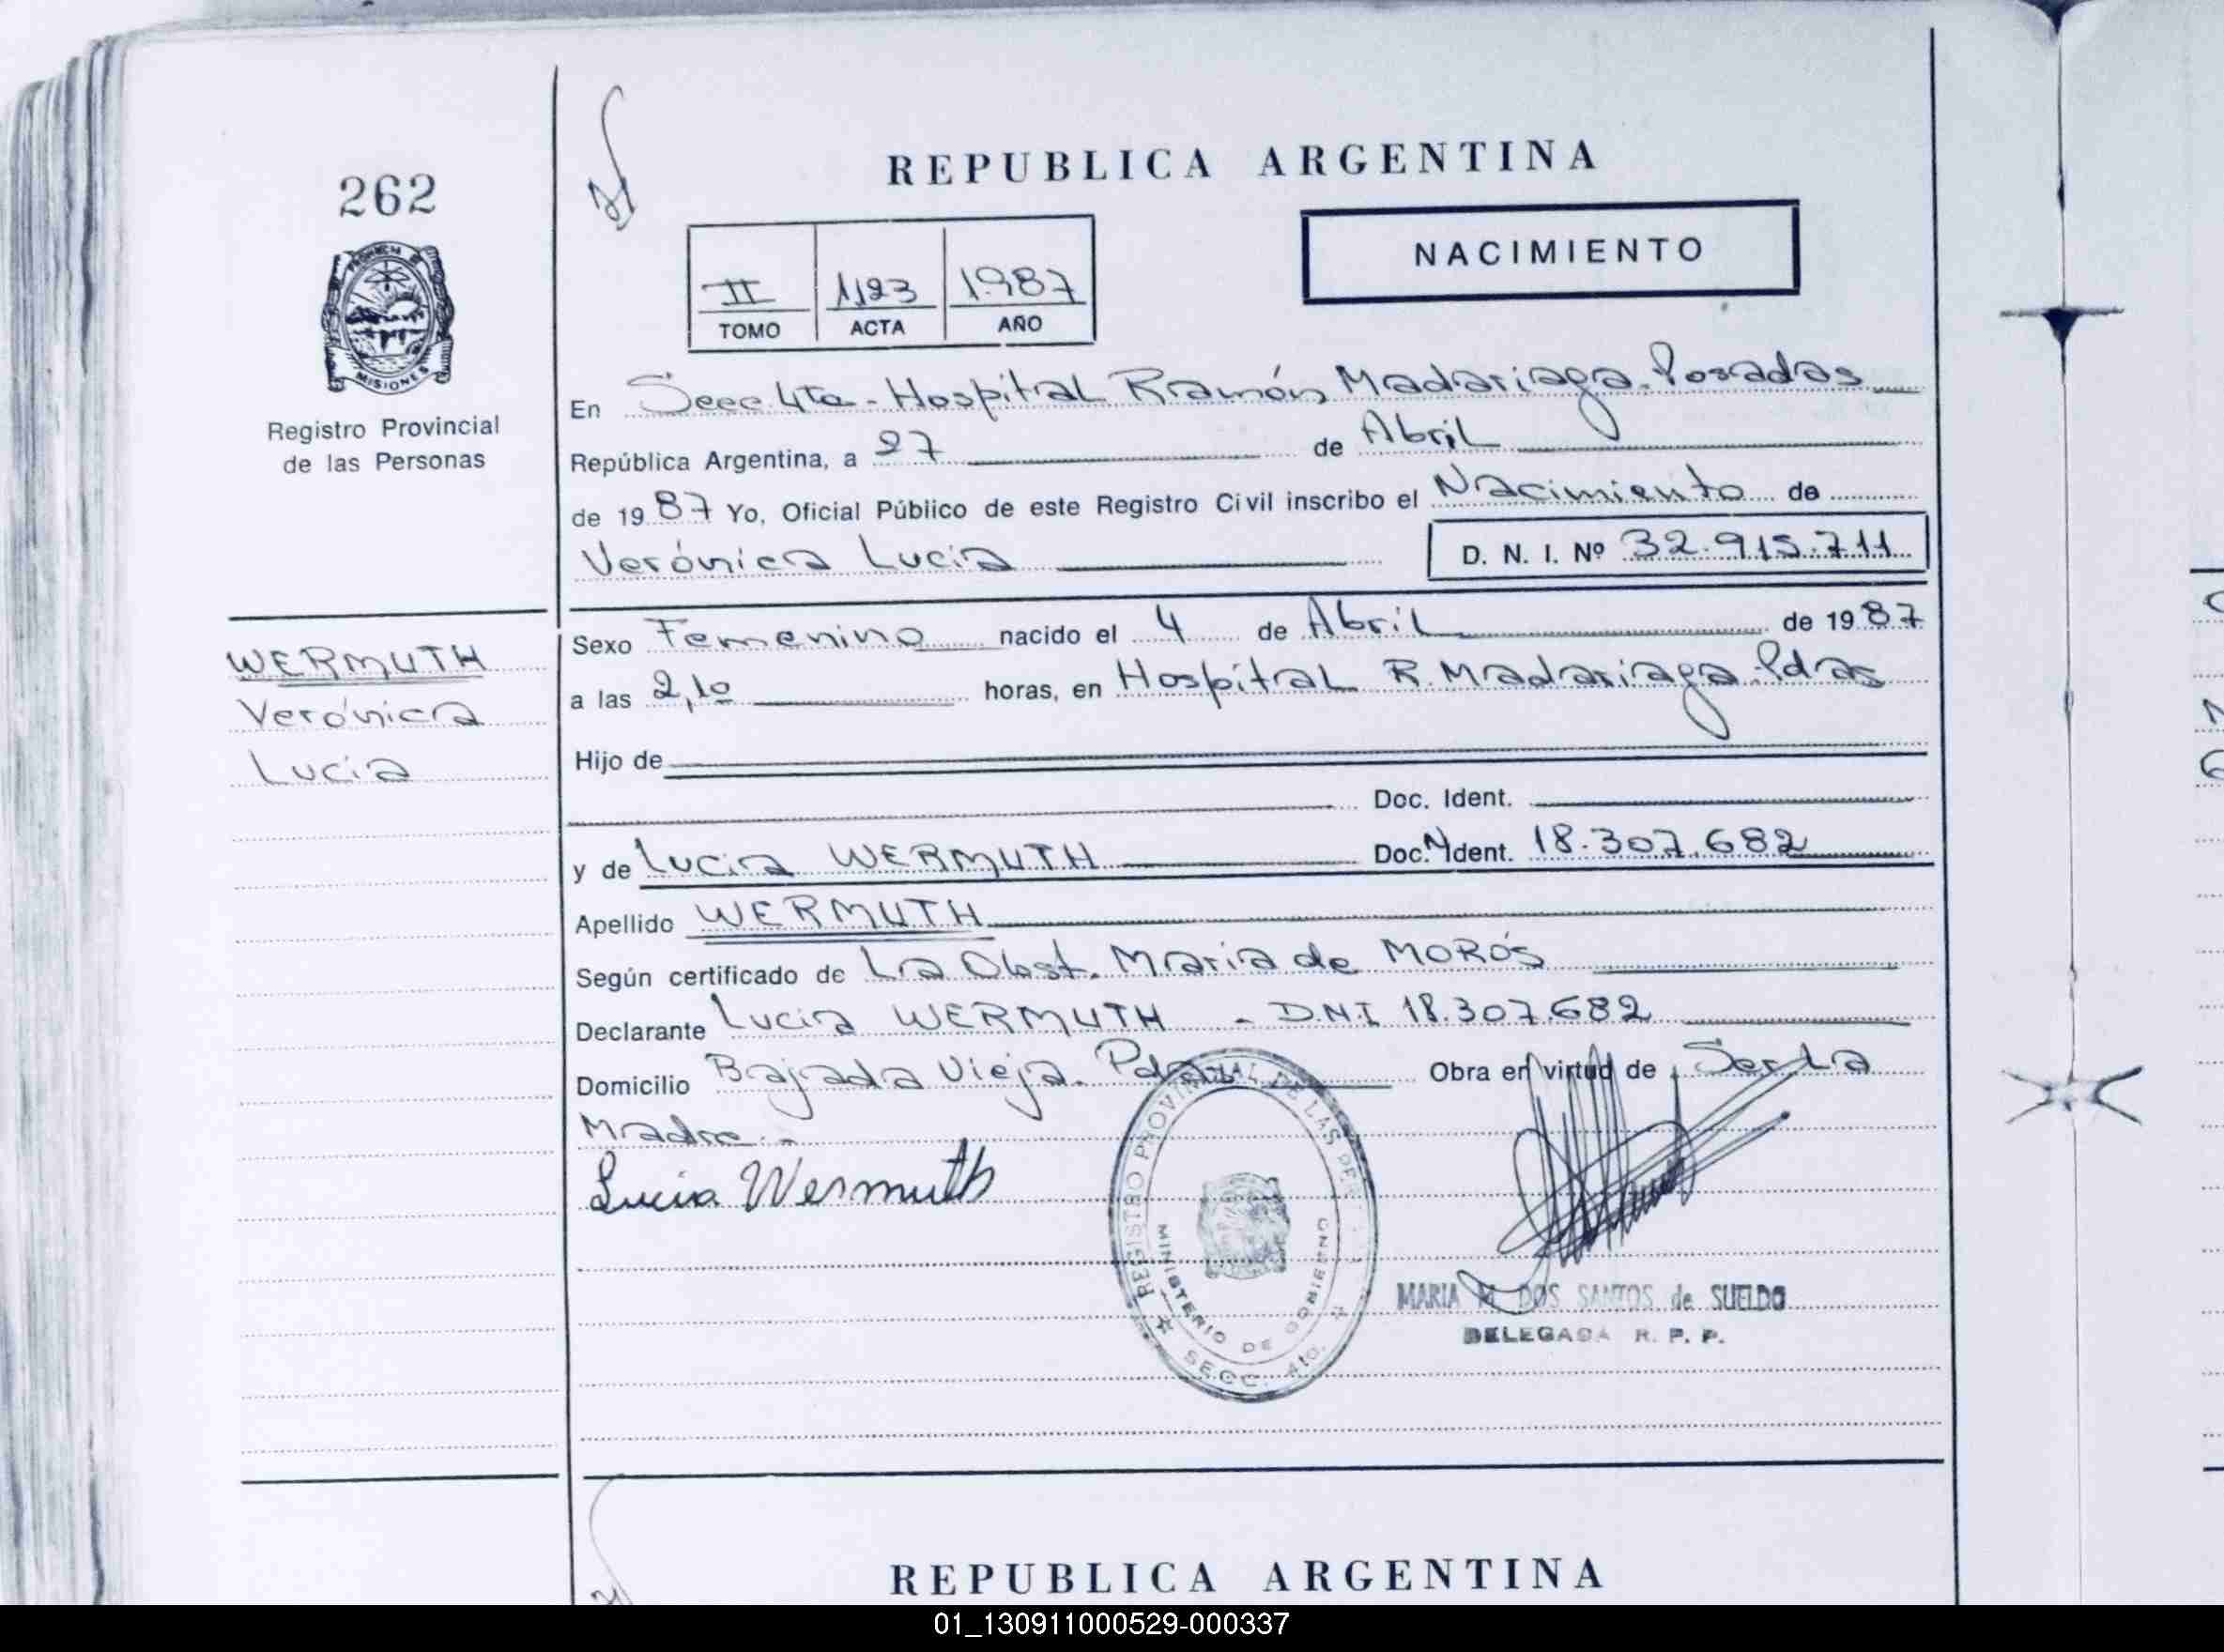 262
PROVINCIA DE
MISIONES
Registro Provincial
de las Personas
WERMUTH
Verónica
Lucía
REPUBLICA ARGENTINA
NACIMIENTO
II 1123 1987
TOMO ACTA AÑO
En Secc 4ta - Hospital Ramón Madariaga. Posadas
República Argentina, a 27 de Abril
de 1987 Yo, Oficial Público de este Registro Civil inscribo el Nacimiento de
Verónica Lucía D. N. I. Nº 32.915.711
Sexo Femenino nacido el 4 de Abril de 1987
a las 2,10 horas, en Hospital R. Madariaga. Pdas
Hijo de
Doc. Ident.
y de Lucia WERMUTH Doc. N Ident. 18.307.682
Apellido WERMUTH
Según certificado de La Obst. Maria de MOROS
Declarante Lucia WERMUTH - DNI 18.307.682
Domicilio Bajada Vieja. Pdas Obra en virtud de Ser La
Madre.-
Lucia Wermuth
REGISTRO PROVINCIAL DE LAS PER
MINISTERIO DE GOBIERNO
SECC. 4to.
MARIA M. DOS SANTOS de SUELDO
DELEGADA R. P. P.
REPUBLICA ARGENTINA
01_130911000529-000337